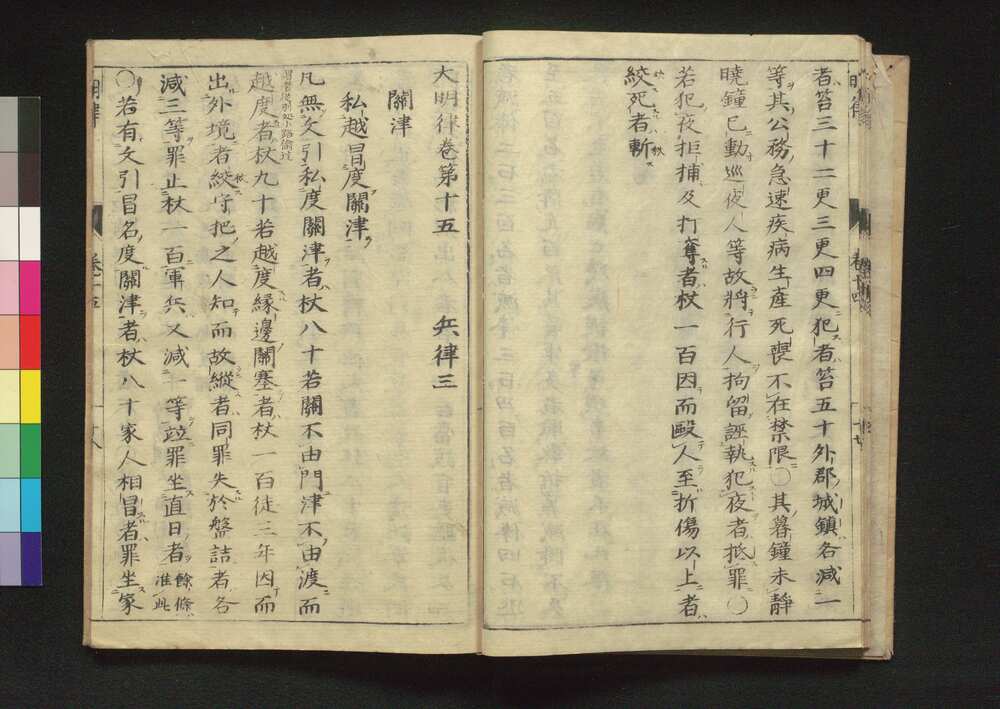 者笞三十二更三更四更犯者笞五十外郡城鎮各減一
等其公務急速疾病生產死喪不在禁限〇其暮鐘未靜
曉鐘已動巡夜人等故將行人拘留誣執犯夜者抵罪〇
若犯夜拒捕及打奪者杖一百因而毆人至折傷以上者
絞死者斬
大明律卷第十五 兵律三
關津
私越冒度關津
凡無文引私度關津者杖八十若關不由門津不由渡而
越度者杖九十若越度緣邊關塞者杖一百徒三年因而
出外境者絞守把之人知而故縱者同罪失於盤詰者各
減三等罪止杖一百軍兵又減一等竝罪坐直日者餘條准此
〇若有文引冒名度關津者杖八十家人相冒者罪坐家